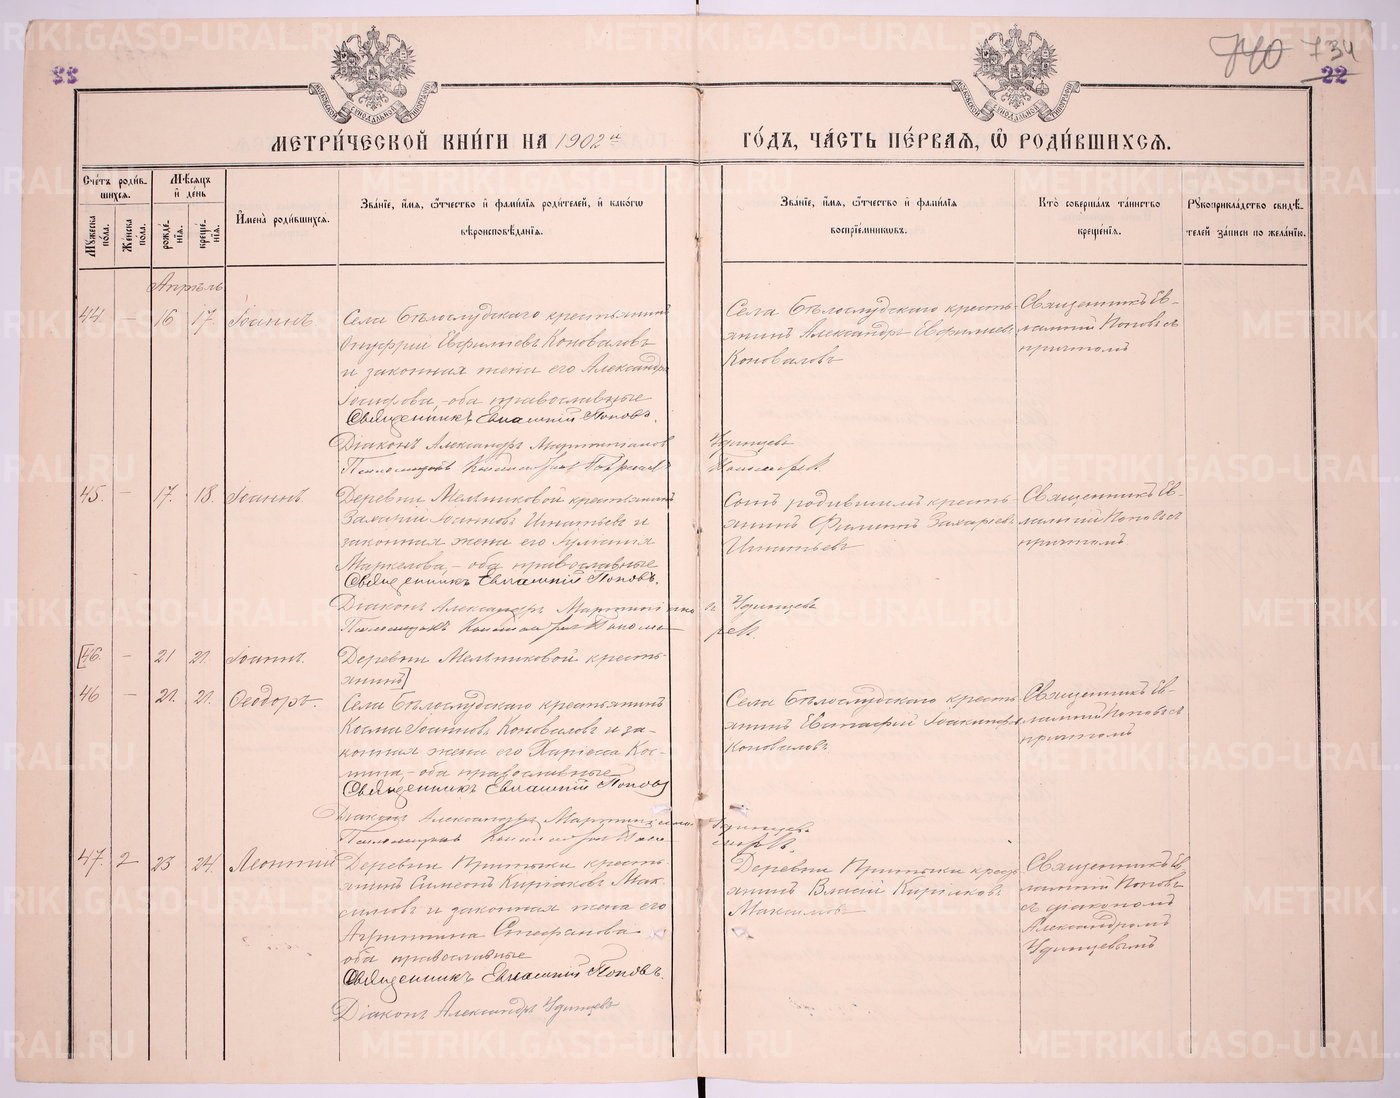 740 734
22
МЕТРИ́ЧЕСКОЙ КНИ́ГИ НА 1902 й ГО́ДЪ, ЧА́СТЬ ПЕ́РВАЯ, Ѡ РОДИ́ВШИХСЯ.
Сче́тъ роди́в-
шихся.
Мѣ́сяцъ
и де́нь
Мꙋжеска по́ла.
Же́нска по́ла.
рожде́-
нія.
креще́-
нія.
И҆мена̀ роди́вшихся.
Зва́ніе, и҆́мя, ѻ҆́тчество и҆ фами́лія роди́телей, и҆ како́гѡ
вѣроисповѣ́данія.
Зва́ніе, и҆́мя, ѻ҆́тчество и҆ фами́лія
воспріе́мникѡвъ.
Кто̀ соверша́лъ та́инство
креще́нія.
Рꙋкоприкла́дство свидѣ́-
телей за́писи по жела́нію.
Апрѣль
44. – 16 17. Іоаннъ
Села Бѣлослудскаго крестьянинъ
Онуфрій Евфиміевъ Коноваловъ
и законная жена его Александра
Іосифова, оба православные
Священникъ Евлампій Поповъ.
Діаконъ Александръ Удинцевъ
Села Бѣлослудскаго кресть-
янинъ Александръ Евфиміевъ
Коноваловъ
Священникъ Ев-
лампій Поповъ съ
причтомъ
45. – 17. 18. Іоаннъ
Деревни Мельниковой крестьянинъ
Захарій Іоанновъ Игнатьевъ и
законная жена его Іуліанія
Маркелова, – оба православные
Священникъ Евлампій Поповъ.
Діаконъ Александръ Удинцевъ
Сынъ родившихъ кресть-
янинъ Филиппъ Захаріевъ
Игнатьевъ
Священникъ Ев-
лампій Поповъ съ
причтомъ.
[46. – 21 21. Іоаннъ
Деревни Мельниковой кресть-
янинъ]
46 – 21. 21. Ѳеодоръ
Села Бѣлослудскаго крестьянинъ
Косма Іоанновъ Коноваловъ и за-
конная жена его Хариеса Кос-
мина, – оба православные
Священникъ Евлампій Поповъ
Діаконъ Александръ Удинцевъ
Села Бѣлослудскаго кресть-
янинъ Евстафій Іоакимовъ
Коноваловъ
Священникъ Ев-
лампій Поповъ съ
причтомъ
47. 2 23 24. Леонтій
Деревни Притыки кресть-
янинъ Симеонъ Киріаковъ Мак-
симовъ и законная жена его
Агриппина Стефанова
оба православные
Священникъ Евлампій Поповъ.
Діаконъ Александръ Удинцевъ
Деревни Притыки кресть-
янинъ Власій Киріаковъ
Максимовъ
Священникъ Ев-
лампій Поповъ
съ діакономъ
Александромъ
Удинцевымъ
METRIKI.GASO-URAL.RU